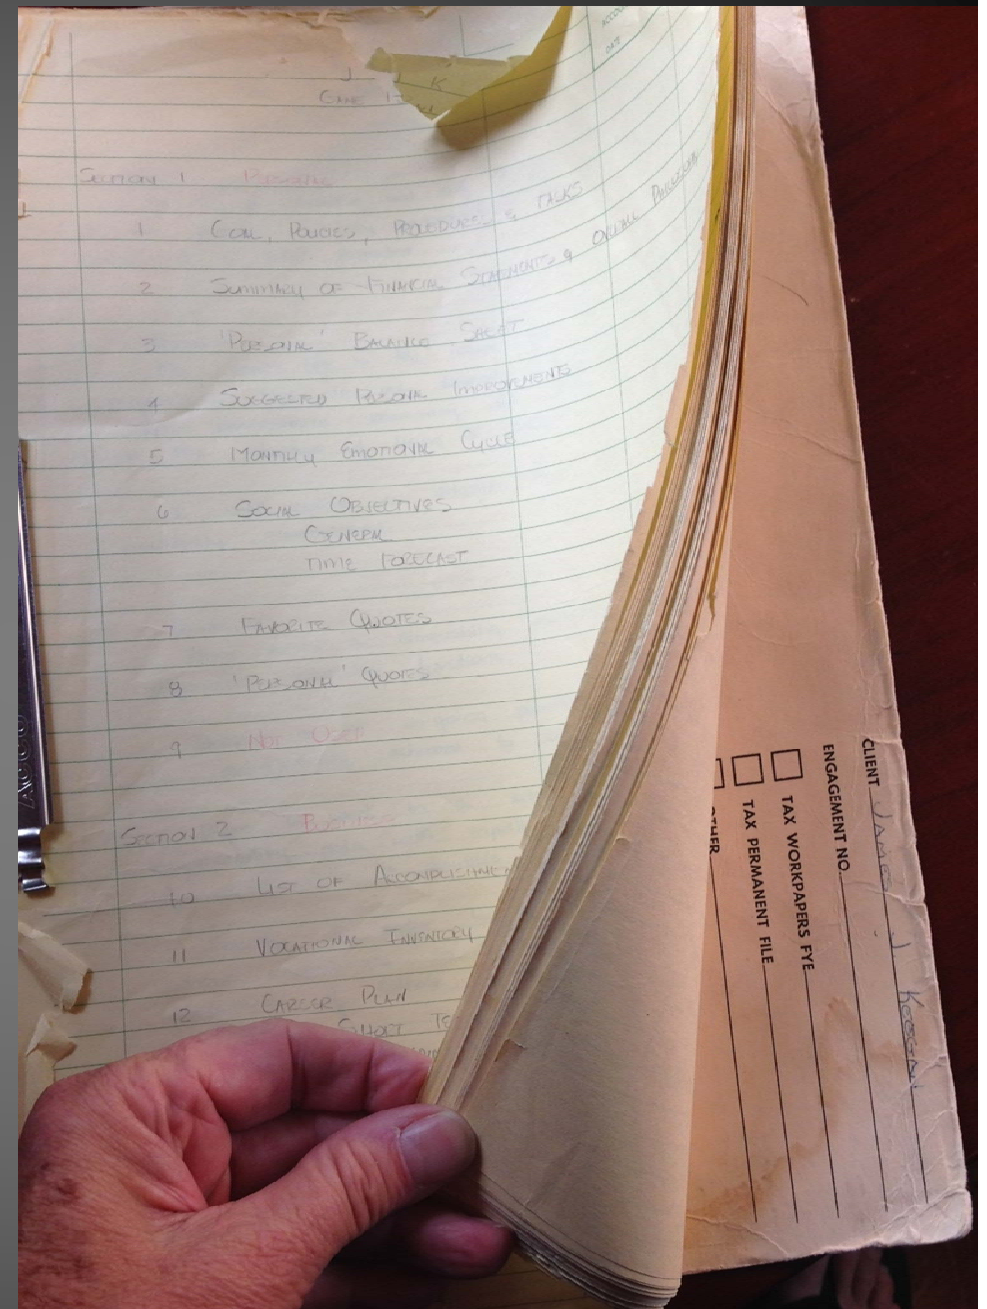 ACCOUNT
DATE
J J K
GAME
SECTION 1 PERSONAL
1 GOAL, POLICIES, PROCEDURES & TASKS
2 SUMMARY OF FINANCIAL STATEMENTS & OVERALL
3 'PERSONAL' BALANCE SHEET
4 SUGGESTED PERSONAL IMPROVEMENTS
5 MONTHLY EMOTIONAL CYCLE
6 SOCIAL OBJECTIVES
GENERAL
TIME FORECAST
7 FAVORITE QUOTES
8 'PERSONAL' QUOTES
9 NOT USED
SECTION 2 BUSINESS
10 LIST OF ACCOMPLISHMEN
11 VOCATIONAL INVENTORY
12 CAREER PLAN
SHORT TE
CLIENT JAMES J KEEGAN
ENGAGEMENT NO.
TAX WORKPAPERS FYE
TAX PERMANENT FILE
OTHER
ACCO